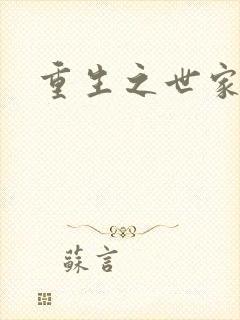 重生之世家
蘇言